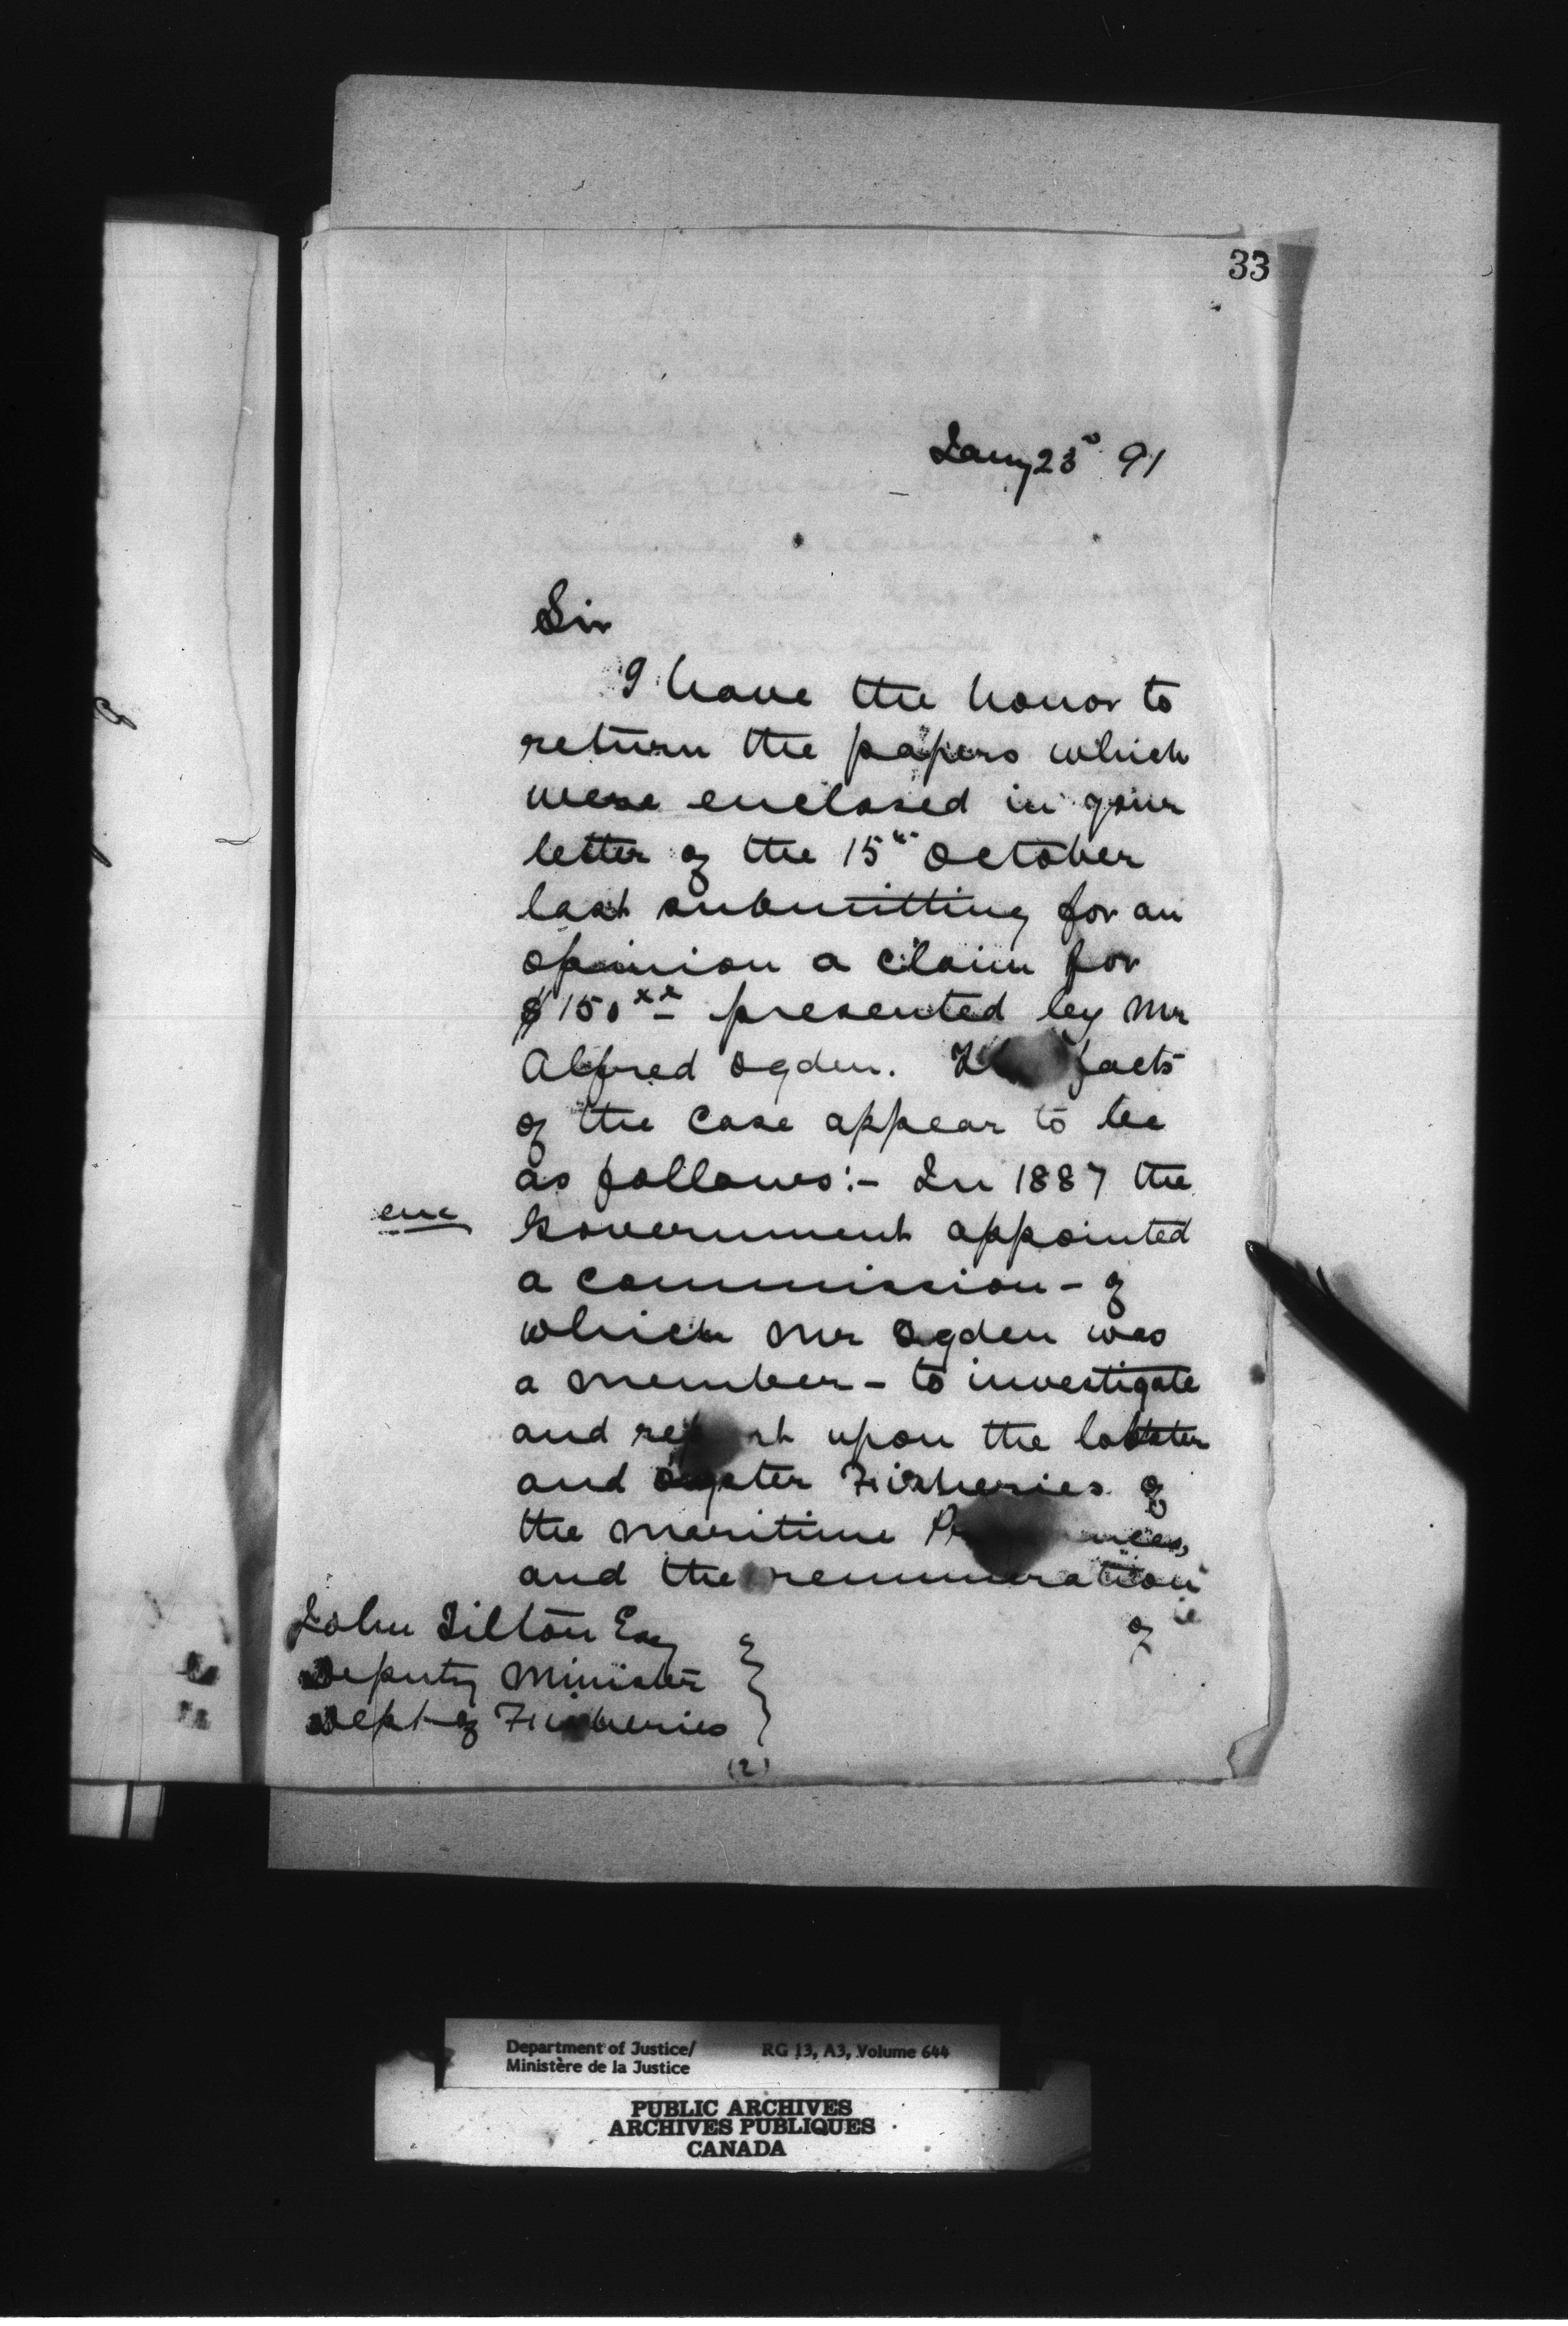 33
Jany 23d 91
Sir
I have the honor to
return the papers which
were enclosed in your
letter of the 15th October
last submitting for an
opinion a claim for
$150xx presented by Mr
Alfred Ogden. The facts
of the case appear to be
as follows:- In 1887 the
enc
Government appointed
a commission - of
which Mr Ogden was
a member - to investigate
and report upon the lobster
and oyster Fisheries of
the Maritime Provinces,
and the remuneration
of
John Tilton Esq
Deputy Minister
Dept of Fisheries
(2)
Department of Justice/
Ministère de la Justice
RG 13, A3, Volume 644
PUBLIC ARCHIVES
ARCHIVES PUBLIQUES
CANADA